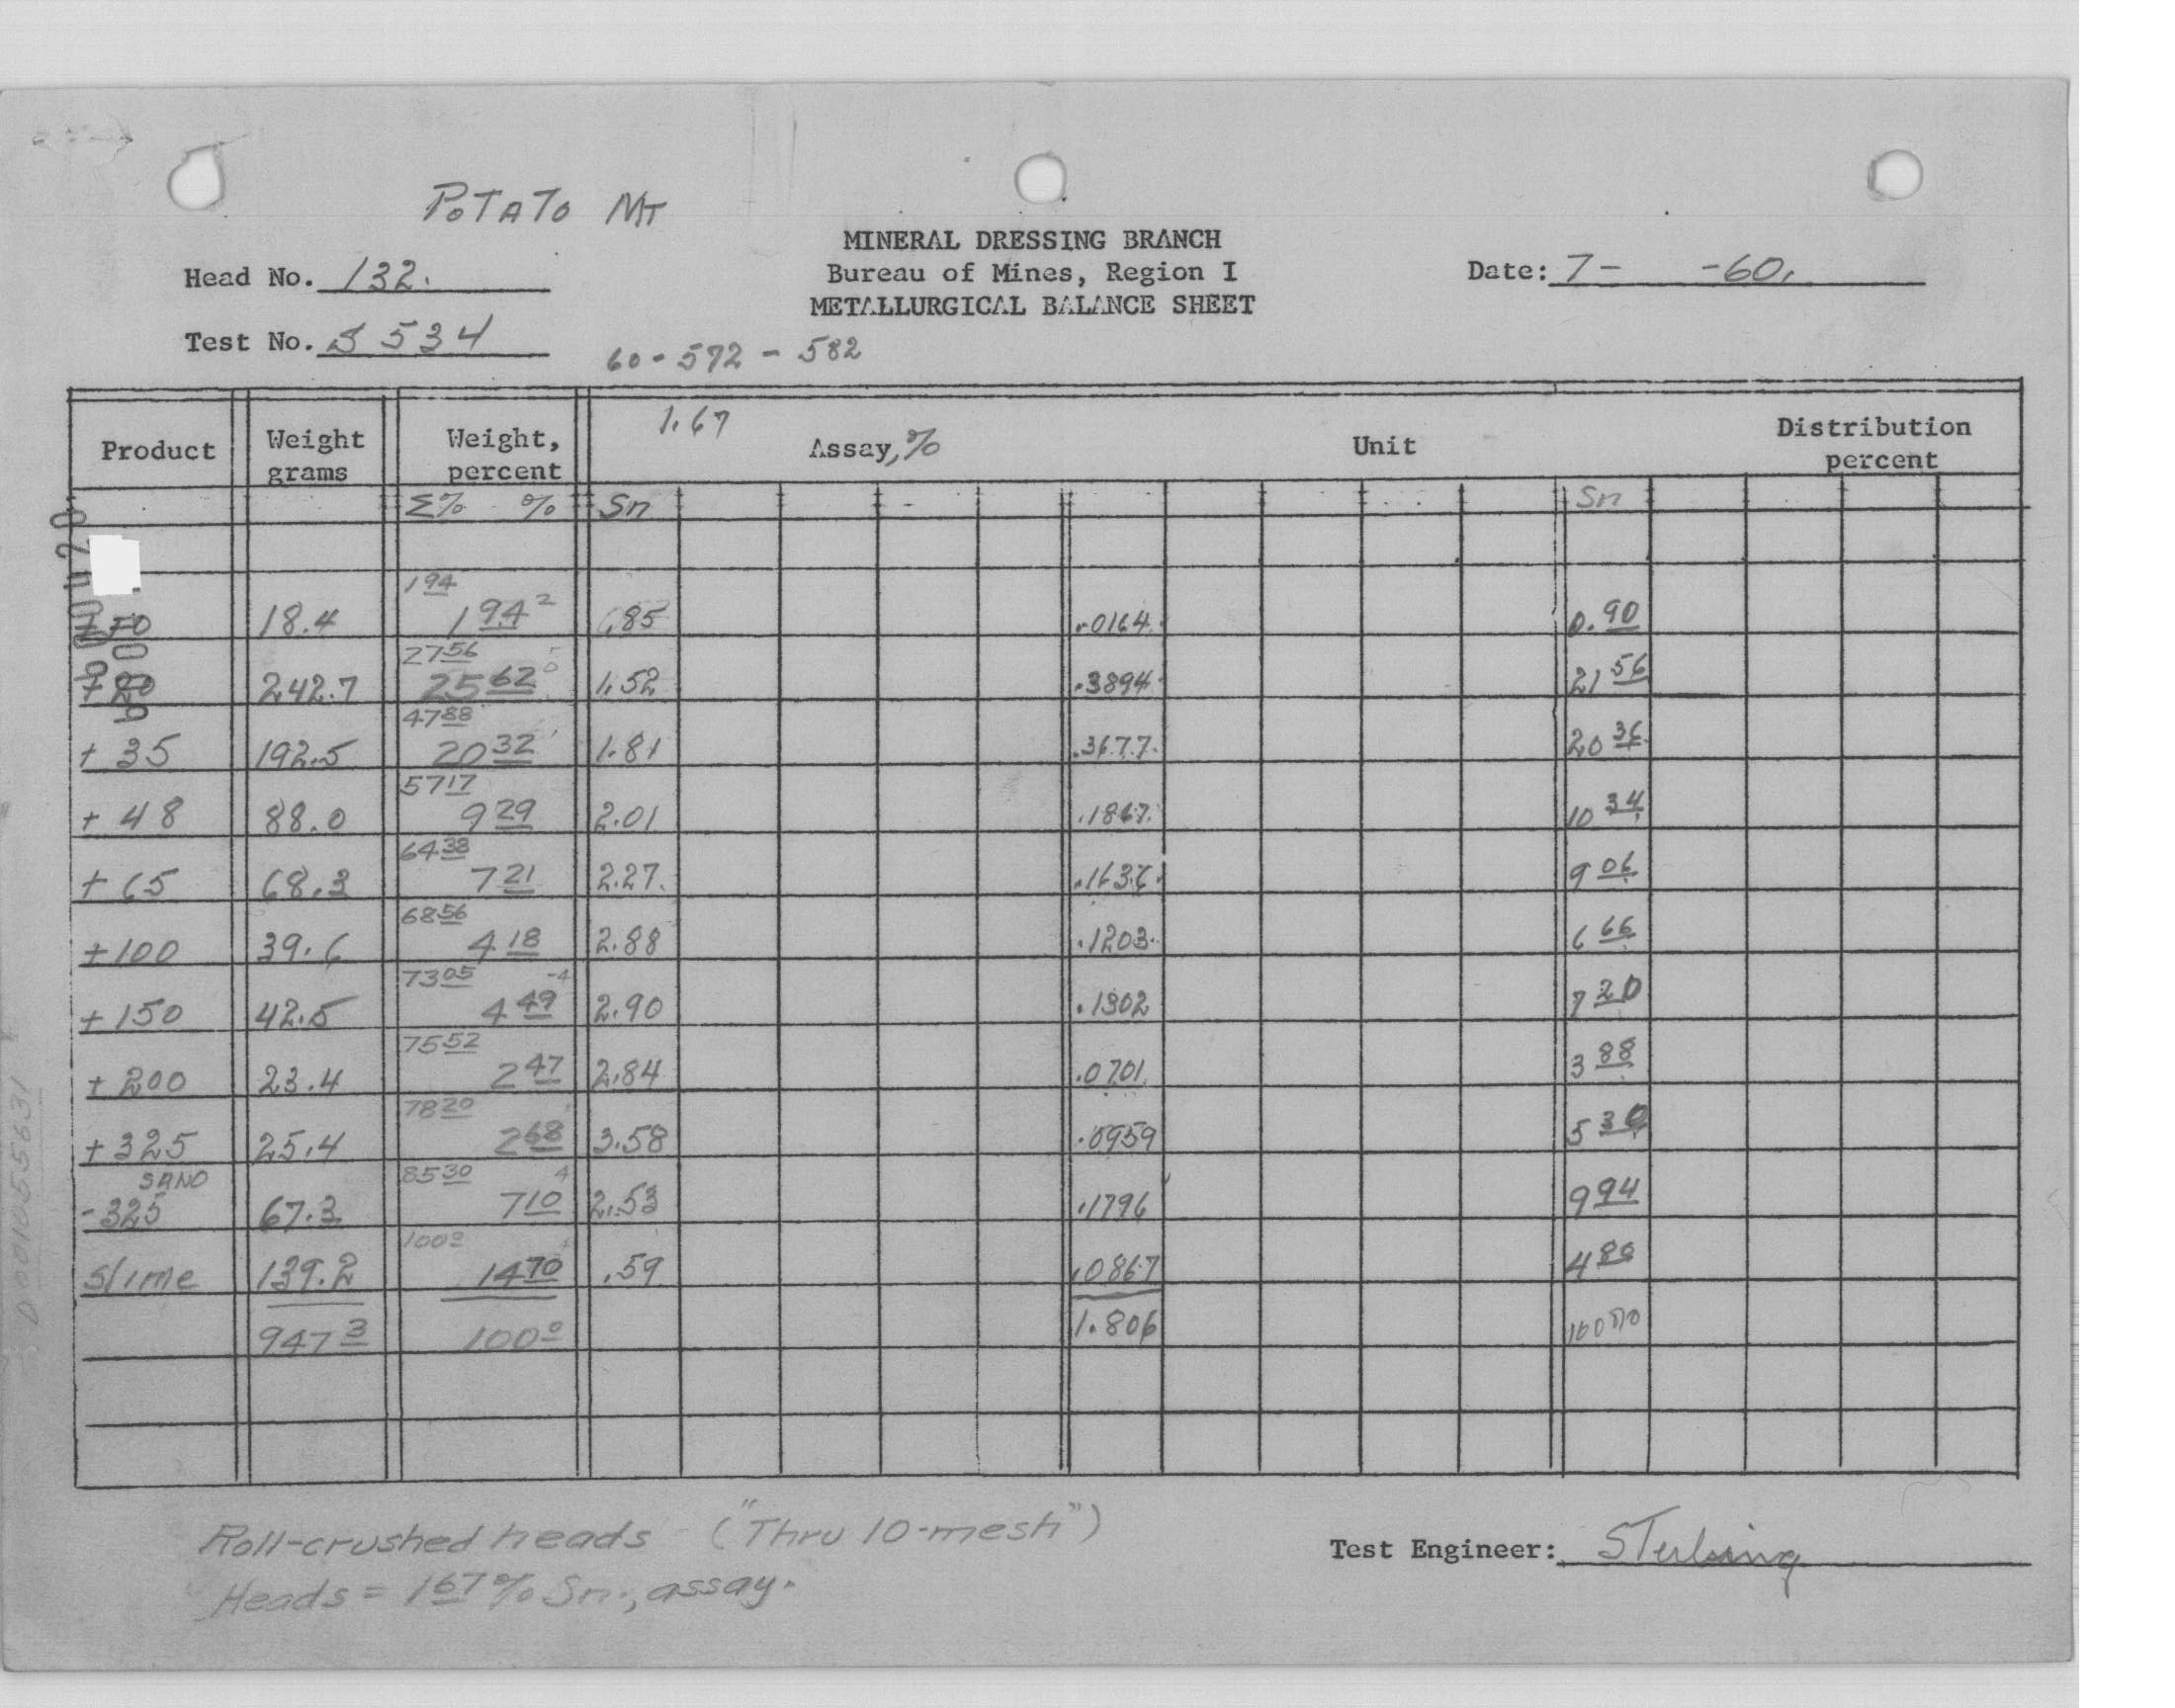 POTATO MT
MINERAL DRESSING BRANCH
Head No. 132. Bureau of Mines, Region I Date: 7- -60.
METALLURGICAL BALANCE SHEET
Test No. S 534
60-572-582
Product Weight grams Weight, percent 1.67 Assay, % Unit Distribution percent
Σ% % Sn Sn
18.4 194 194 2 .85 .0164 0.90
+20 242.7 2756 2562 1.52 .3894 21 56
+35 192.5 4788 2032 1.81 .3677 20 36
+48 88.0 5717 929 2.01 .1867 10 34
+65 68.3 6438 721 2.27 .1636 9 06
+100 39.6 6856 418 2.88 .1203 6 66
+150 42.5 7305 449 -4 2.90 .1302 7 20
+200 23.4 7552 247 2.84 .0701 3 88
+325 25.4 7820 268 3.58 .0959 5 30
SAND
-325 67.3 8530 710 4 2.53 .1796 9 94
Slime 139.2 1000 1470 .59 .0867 4 80
947 3 1000 1.806 100 00
Roll-crushed heads ("Thru 10-mesh")
Test Engineer: Sterling
Heads = 167% Sn., assay.
D0010555631